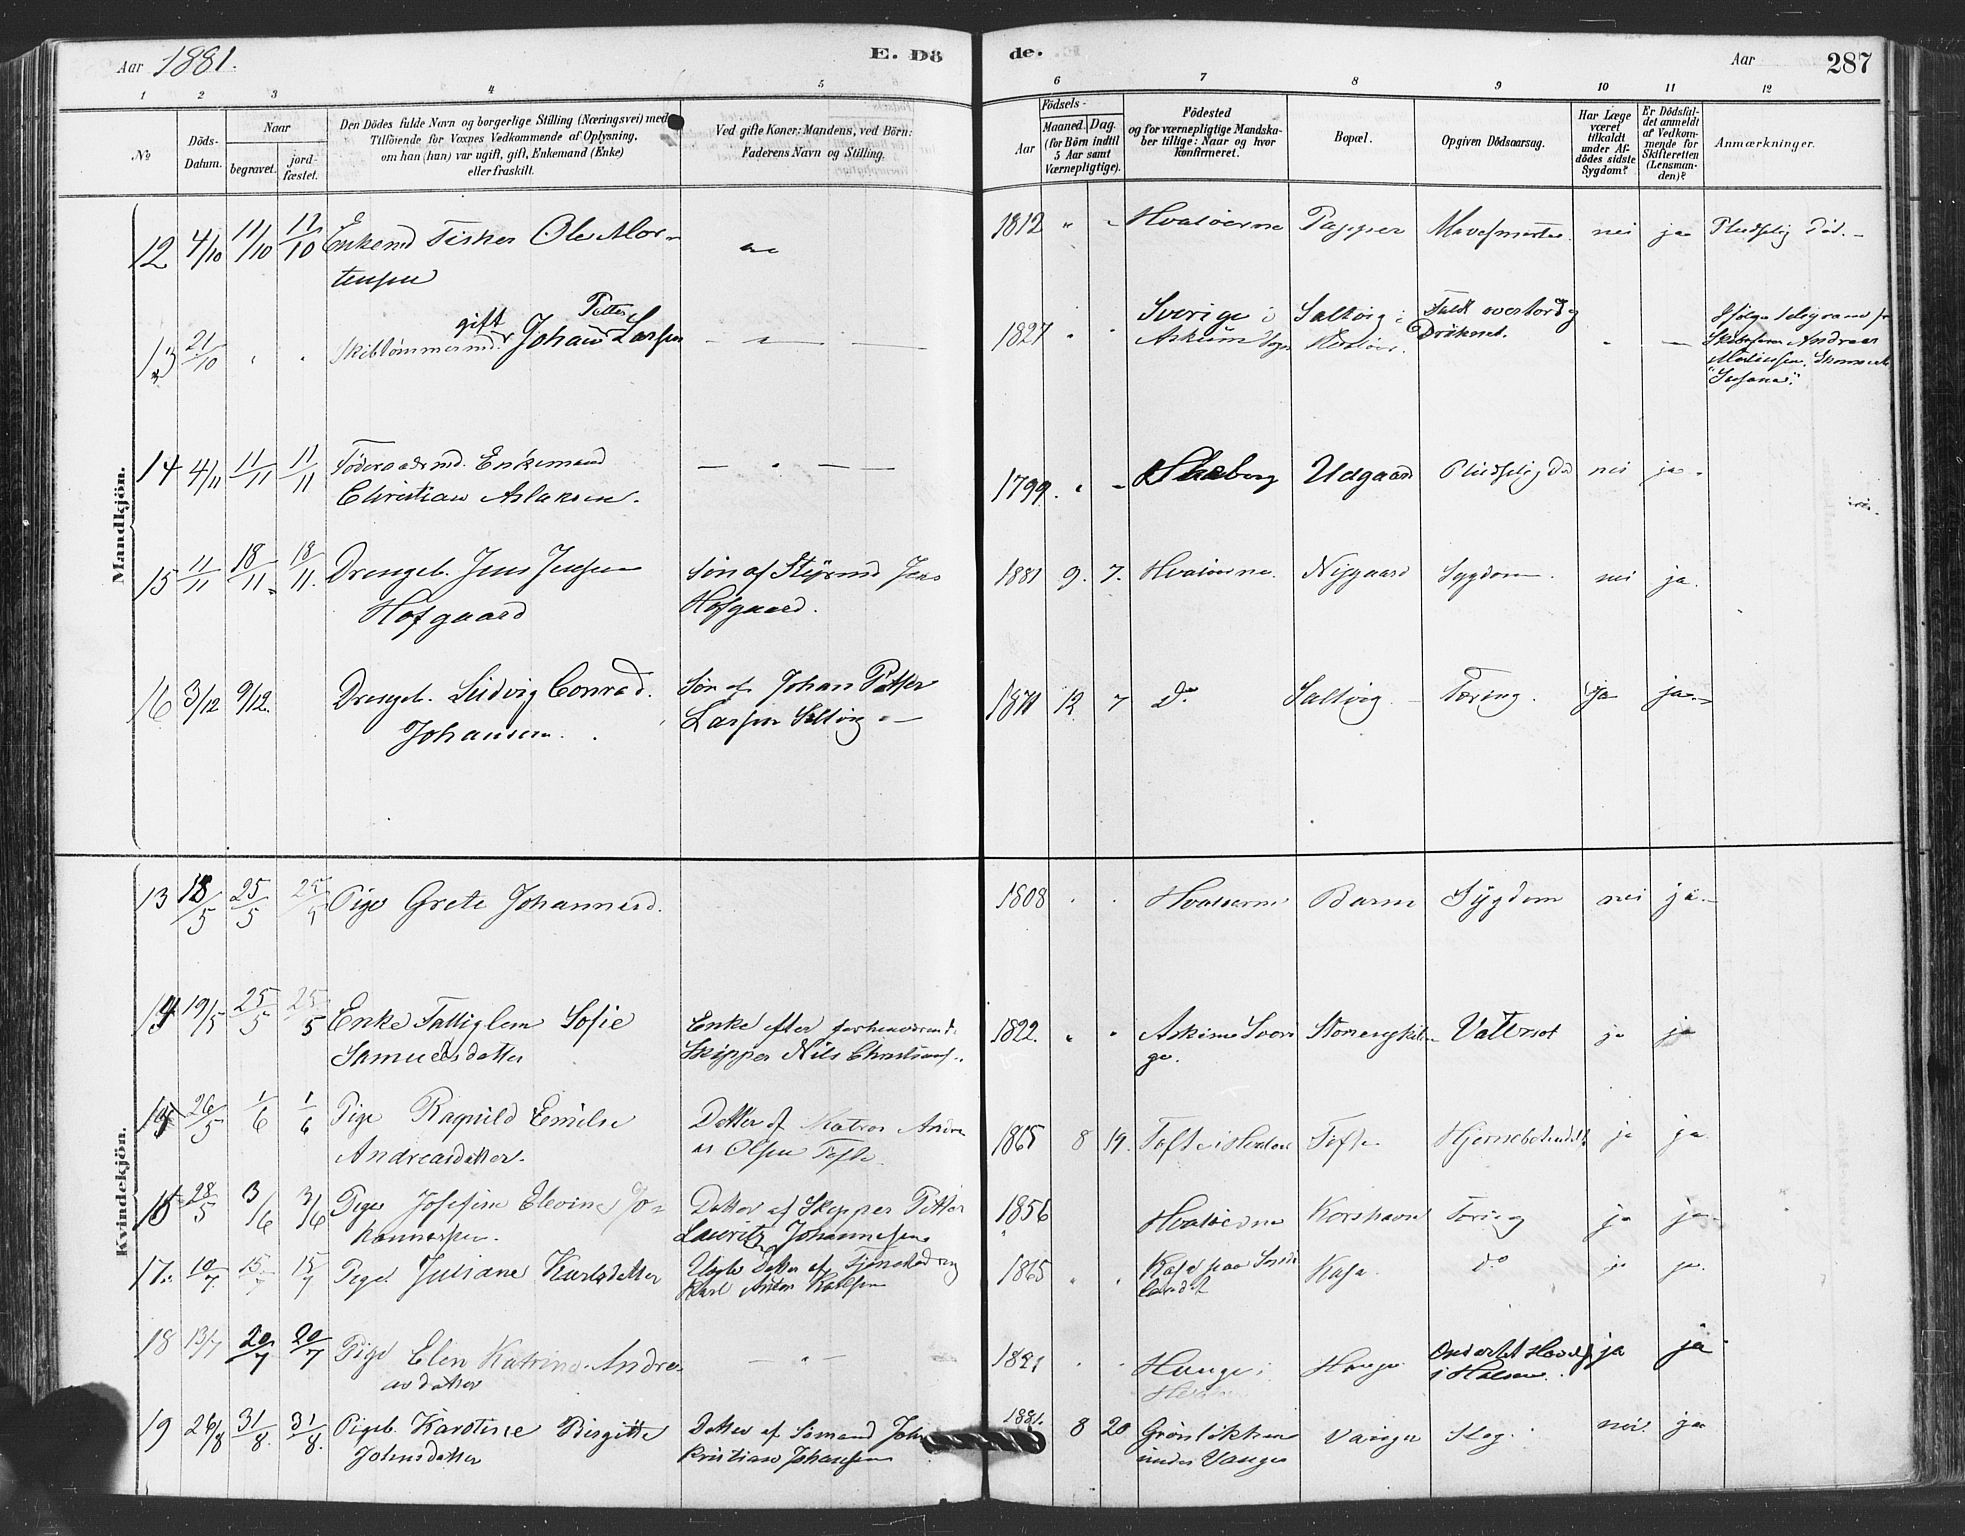 Aar 1881.
E. Dö
de.
Aar
287
1 2 3 4 5 6 7 8 9 10 11 12
No
Döds-Datum.
Naar
begravet.
jord-fæstet.
Den Dödes fulde Navn og borgerlige Stilling (Næringsvei) med
Tilföiende for Voxnes Vedkommende af Oplysning,
om han (hun) var ugift, gift, Enkemand (Enke)
eller fraskilt.
Ved gifte Koner: Mandens, ved Börn:
Faderens Navn og Stilling.
Födsels-
Aar
Maaned. Dag.
(for Börn indtil
5 Aar samt
Værnepligtige).
Födested
og for værnepligtige Mandska-
ber tillige: Naar og hvor
konfirmeret.
Bopæl.
Opgiven Dödsaarsag.
Har Læge
været
tilkaldt
under Af-
dödes sidste
Sygdom?
Er Dödsfal-
det anmeldt
af Vedkom-
mende for
Skifteretten
(Lensman-
den)?
Anmærkninger.
Mandkjön.
12 4/10 11/10 11/10 Enkemd Fisker Ole Mor-
tensen
1812 " " Hvaløerne Papper Mavesmerter nei ja Pludselig Død. -
13 21/10 " " Skibtømmermd. gift Johan Petter Larsen
1827 " " Sverige i Saltvig i Faldt overbord og
Askum Sogn Hvaløer. Druknet.
Ifølge telegram fr
Skibsfører Andreas
Martinsen, Skonnert
"Susanna".
14 4/11 11/11 11/11 Föderaadsmd. Enkemand
Christian Aslaksen.
1799. " " Skeberg Udgaard Pludselig Død nei ja.
15 11/11 18/11 18/11. Drengeb. Jens Jensen
Hofgaard
Søn af Styrmd Jens
Hofgaard.
1881 9. 7. Hvaløerne. Nygaard Sygdom. nei ja.
16 3/12 9/12. Drengeb. Ludvig Conrad.
Johansen.
Søn af Johan Petter
Larsen Saltvig
1871 12 7 Do Saltvig. Tæring. ja ja.
Kvindekjön.
13 18/5 25/5 25/5 Pige Grete Johannesd.
1808 " " Hvaløerne Barm Sygdom nei ja.
14 19/5 25/5 25/5 Enke Fattiglem Sofie
Samuelsdatter
Enke efter forhenværende
Skipper Nils Christians.
1822. " " Askim Sveri-
ge. Vattersot ja ja
15 26/5 1/6 1/6 Pige Ragnild Emilie
Andreasdatter.
Datter af Matros Andre-
as Olsen Tofte.
1865 8 19. Tofte i Hvaløer Tofte Hjernebetændelse ja ja
16 28/5 3/6 3/6 Pige Josefine Elevine Jo-
hannesen.
Datter af Skipper Petter
Lauritz Johannesen
1856 Hvaløerne Korshavn Tæring ja ja
17. 10/7. 15/7 15/7 Pige Juliane Karlsdatter
Uægte Datter af
Karl Anton Karlsen
1865 " " Kasa paa Søndre
landet Kasa. do ja ja.
18 13/7 20/7 20/7 Pige Elen Katrine Andre-
asdatter
" " Hauge i
Hvaløer Hauge Ondartet Hævelse
i Halsen. ja ja
19 26/8 31/8. 31/8. Pigeb. Karoline Birgitte
Johnsdatter
Datter af Sømand John
Kristian Johansen
1881. 8 20 Grønløkken
under Vauger Vauger Slag. nei. ja